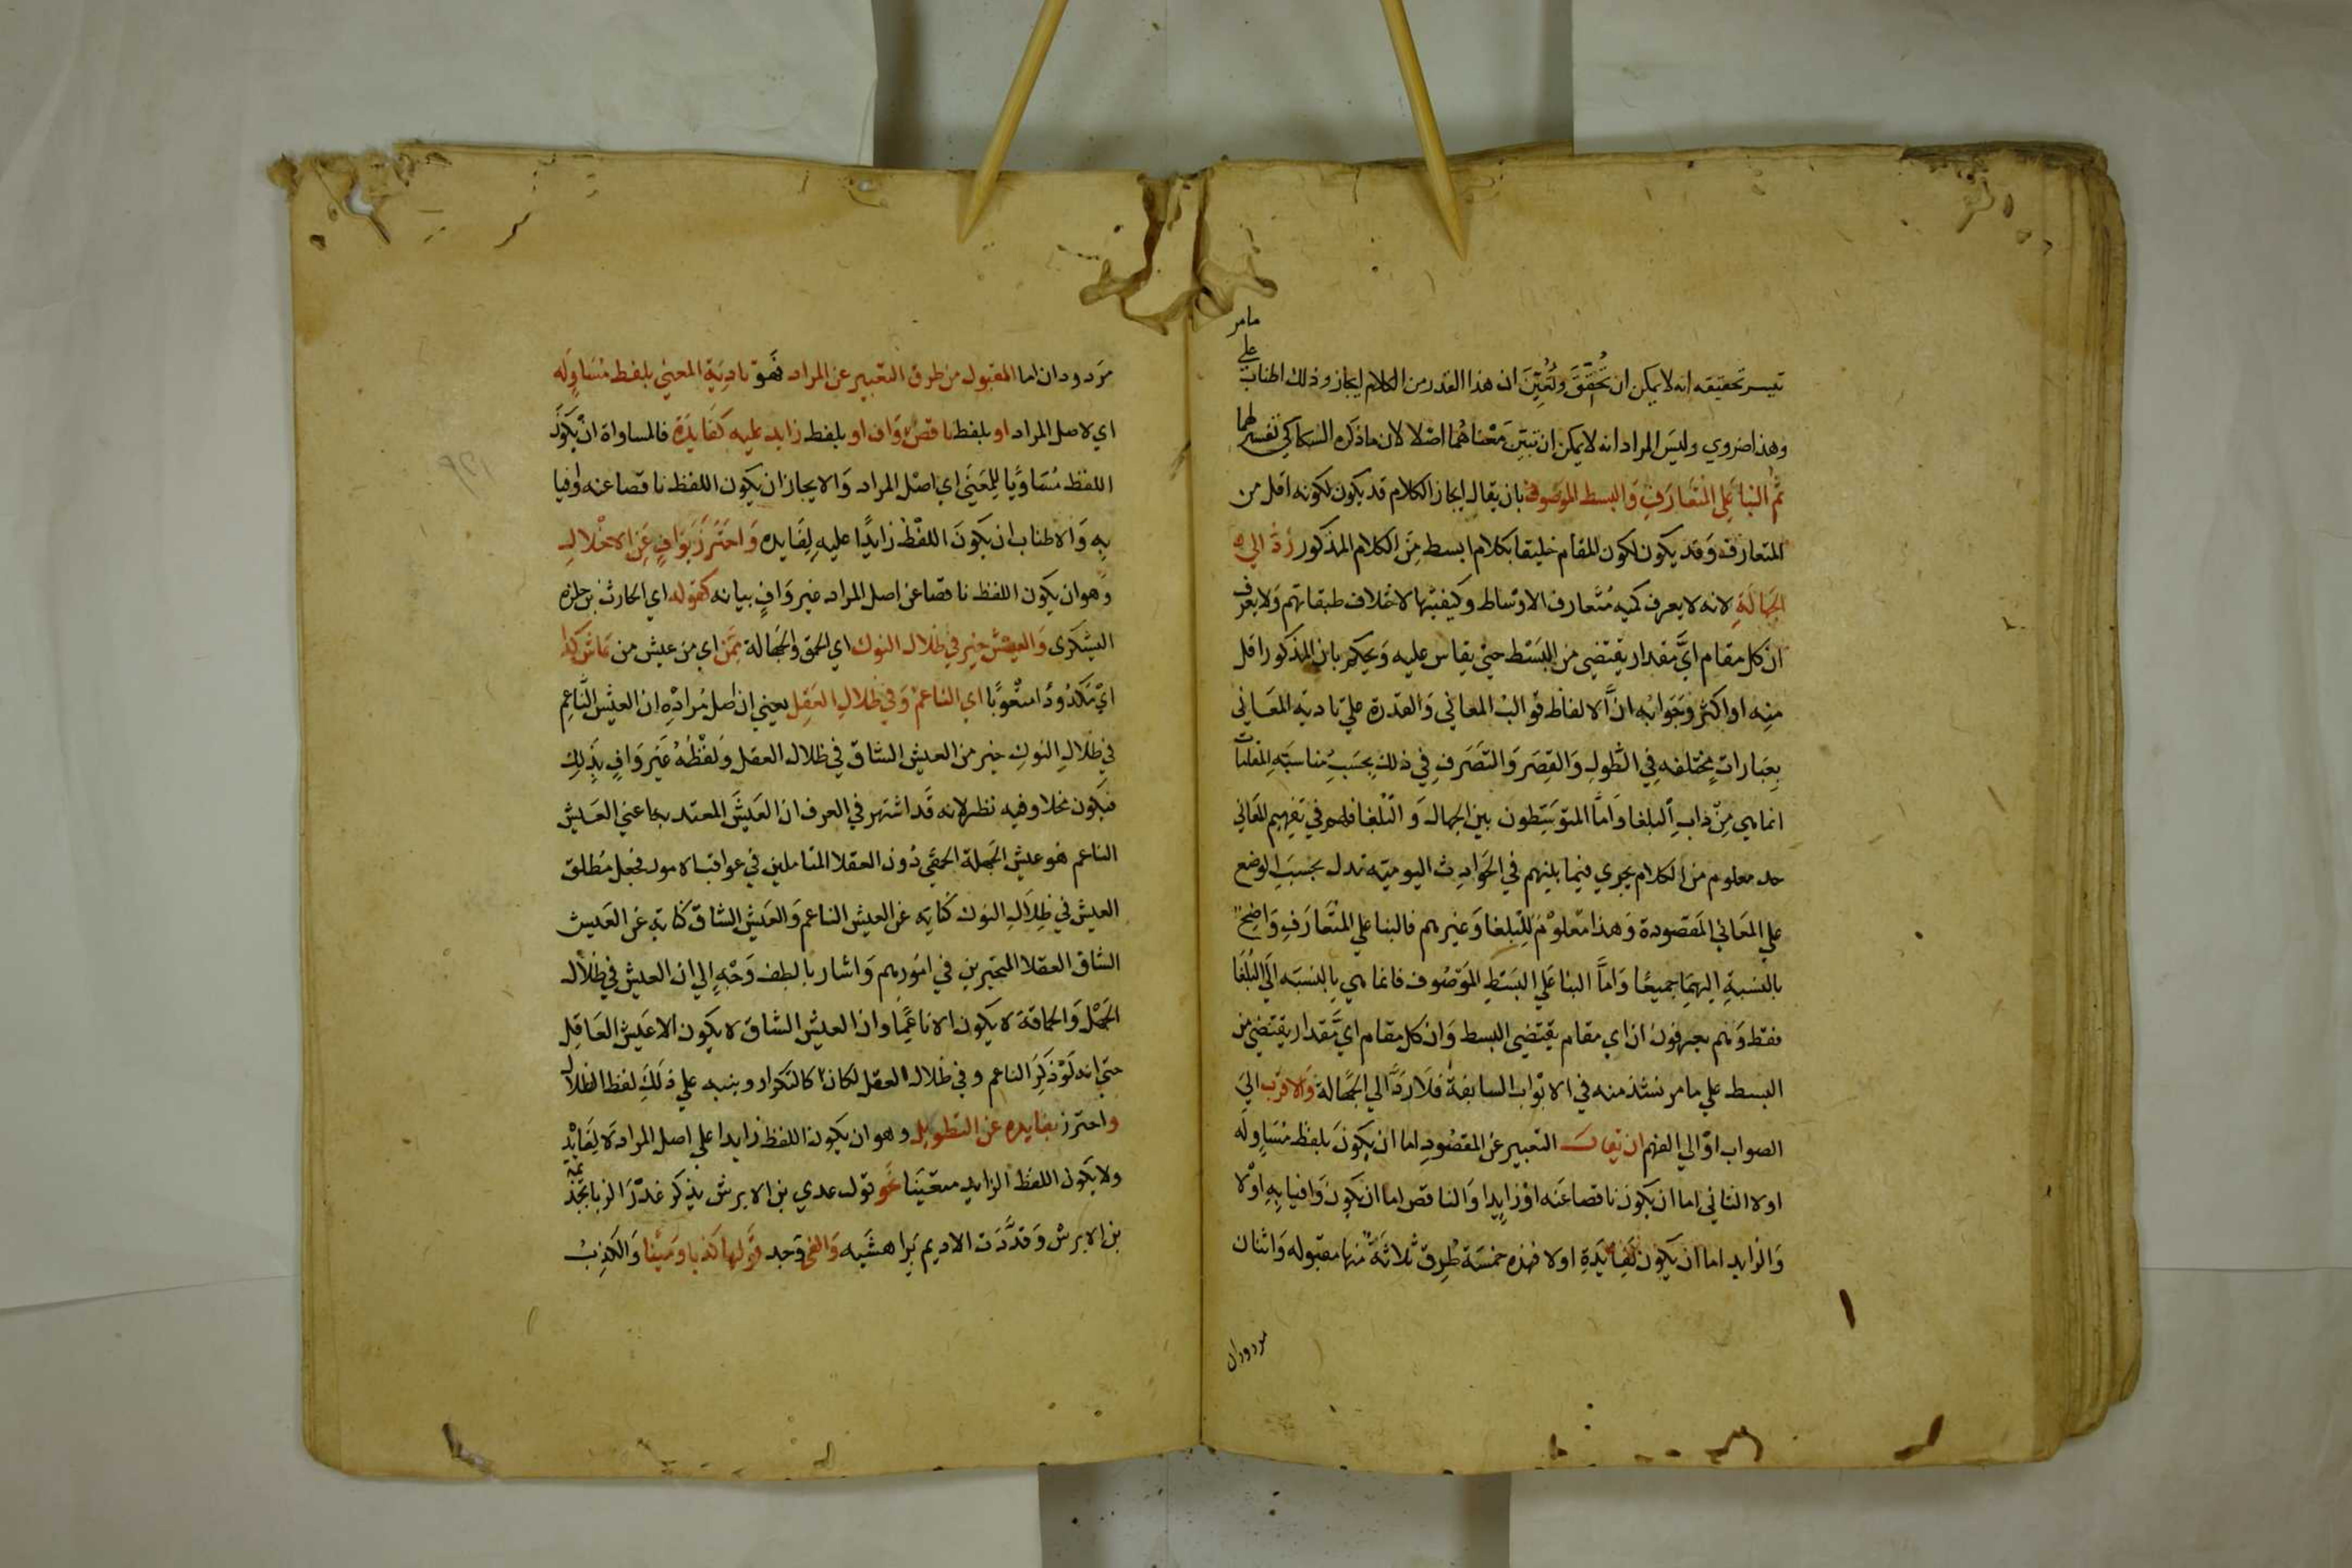 مامر
علي
تيسر تحقيقه انه لا يمكن ان تُحَقِّقَ وتُعَيِّنَ ان هذا القدر من الكلام ايجاز وذلك اطناب
وهذا ضروي وليس المراد انه لا يمكن ان تبين معناهما اصلا لان ما ذكره السكاكي تفسير لهما
ثم البنا علي المتعارف والبسط الموصوف بان يقال ايجاز الكلام قد يكون لكونه اقل من
المتعارف وقد يكون لكون المقام خليقا بكلام ابسط من الكلام المذكور رد الي
الجهالة لانه لا يعرف كميه متعارف الاوساط وكيفيتها لاختلاف طبقاتهم ولا يعرف
ان كل مقام اي مقدار يقتضي من البسط حتي يقاس عليه ويحكم بان المذكور اقل
منه او اكثر وجوابه ان الالفاظ قوالب المعاني والقدرة علي تادية المعاني
بعبارات مختلفه في الطول والقصر والتصرف في ذلك بحسب مناسبة المقامات
انما هي من داب البلغا واما المتوسطون بين الجهال والبلغا فلهم في تفهيم المعاني
حد معلوم من الكلام يجري فيما بينهم في الحوادث اليوميه تدل بحسب الوضع
علي المعاني المقصودة وهذا معلوم للبلغا وغيرهم فالبنا علي المتعارف واضح
بالنسبة اليهما جميعا واما البنا علي البسط الموصوف فانما هي بالنسبه الي البلغا
فقط وهم يعرفون ان اي مقام يقتضي البسط وان كل مقام اي مقدار يقتضي من
البسط علي ما مر نبذ منه في الابواب السابقة فلا رد الي الجهالة والاقرب الي
الصواب او الي الفهم ان يقال التعبير عن المقصود اما ان يكون بلفظ مساوٍ له
اولا الثاني اما ان يكون ناقصا عنه او زايدا والناقص اما ان يكون وافيا به اولا
والزايد اما ان يكون لفايدة اولا فهذه خمسة طرق ثلاثة منها مقبوله واثنان
مردودان
مردودان اما المقبول من طرق التعبير عن المراد فهو تادية المعني بلفظ مساوٍ له
اي لاصل المراد او بلفظ ناقص وافٍ او بلفظ زايد عليه لفايدة فالمساواة ان يكون
اللفظ مساويا للمعني اي اصل المراد والايجاز ان يكون اللفظ ناقصا عنه وافيا
به والاطناب ان يكون اللفظ زايدا عليه لفايده واحترز بوافٍ عن الاخلال
وهو ان يكون اللفظ ناقصا عن اصل المراد غير وافٍ ببيانه كقوله اي الحارث بن حلزه
اليشكري والعيش خير في ظلال النوك اي الحمق والجهالة ممن اي من عيش من عاش كدا
اي مكدودا متعوبا اي الناعم وفي ظلال العقل يعني ان اصل مراده ان العيش الناعم
في ظلال النوك خير من العيش الشاق في ظلال العقل ولفظه غير وافٍ بذلك
فيكون مخلا وفيه نظر لانه قد اشتهر في العرف ان العيش المعتد به اعني العيش
الناعم هو عيش الجهلة الحمقي دون العقلا المتاملين في عواقب الامور فجعل مطلق
العيش في ظلال النوك كناية عن العيش الناعم والعيش الشاق كناية عن العيش
الشاق العقلا المتحيرين في امورهم واشار بالطف وجه الي ان العيش في ظلال
الجهل والحماقة لا يكون الا ناعما وان العيش الشاق لا يكون الا عيش العاقل
حتي انه لو ذكر الناعم وفي ظلال العقل لكان كالتكرار وينبه علي ذلك لفظ الظلال
واحترز بفايده عن التطويل وهو ان يكون اللفظ زايدا علي اصل المراد لا لفايدة
ولا يكون اللفظ الزايد متعينا نحو قول عدي بن الابرش يذكر غدر الزبا بجذيمة
بن الابرش وقددت الاديم لراهشيه والفي وجد قولها كذبا ومينا والكذب